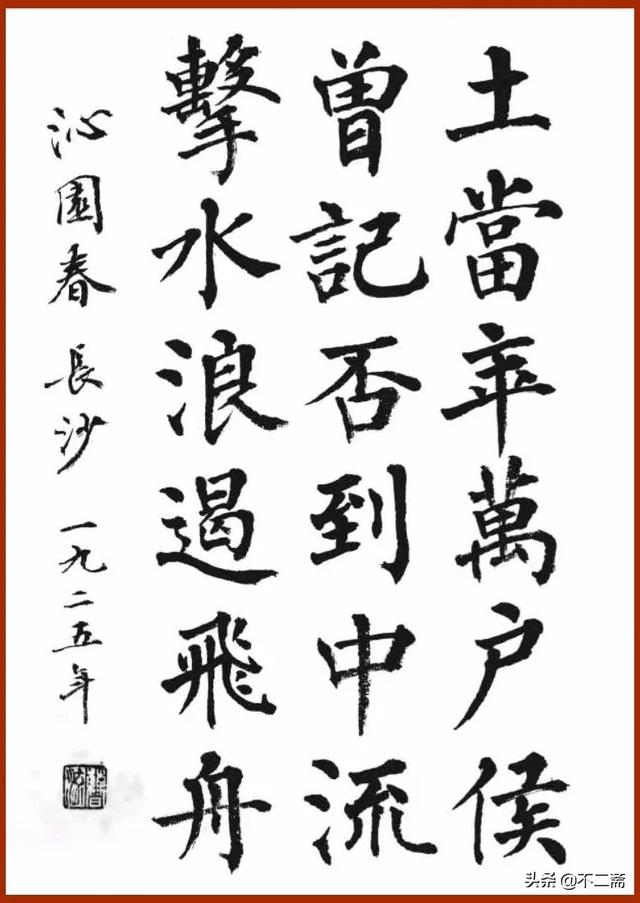 土當年萬戶侯
曾記否到中流
擊水浪遏飛舟
沁園春 長沙 一九二五年
頭条 @不二斋